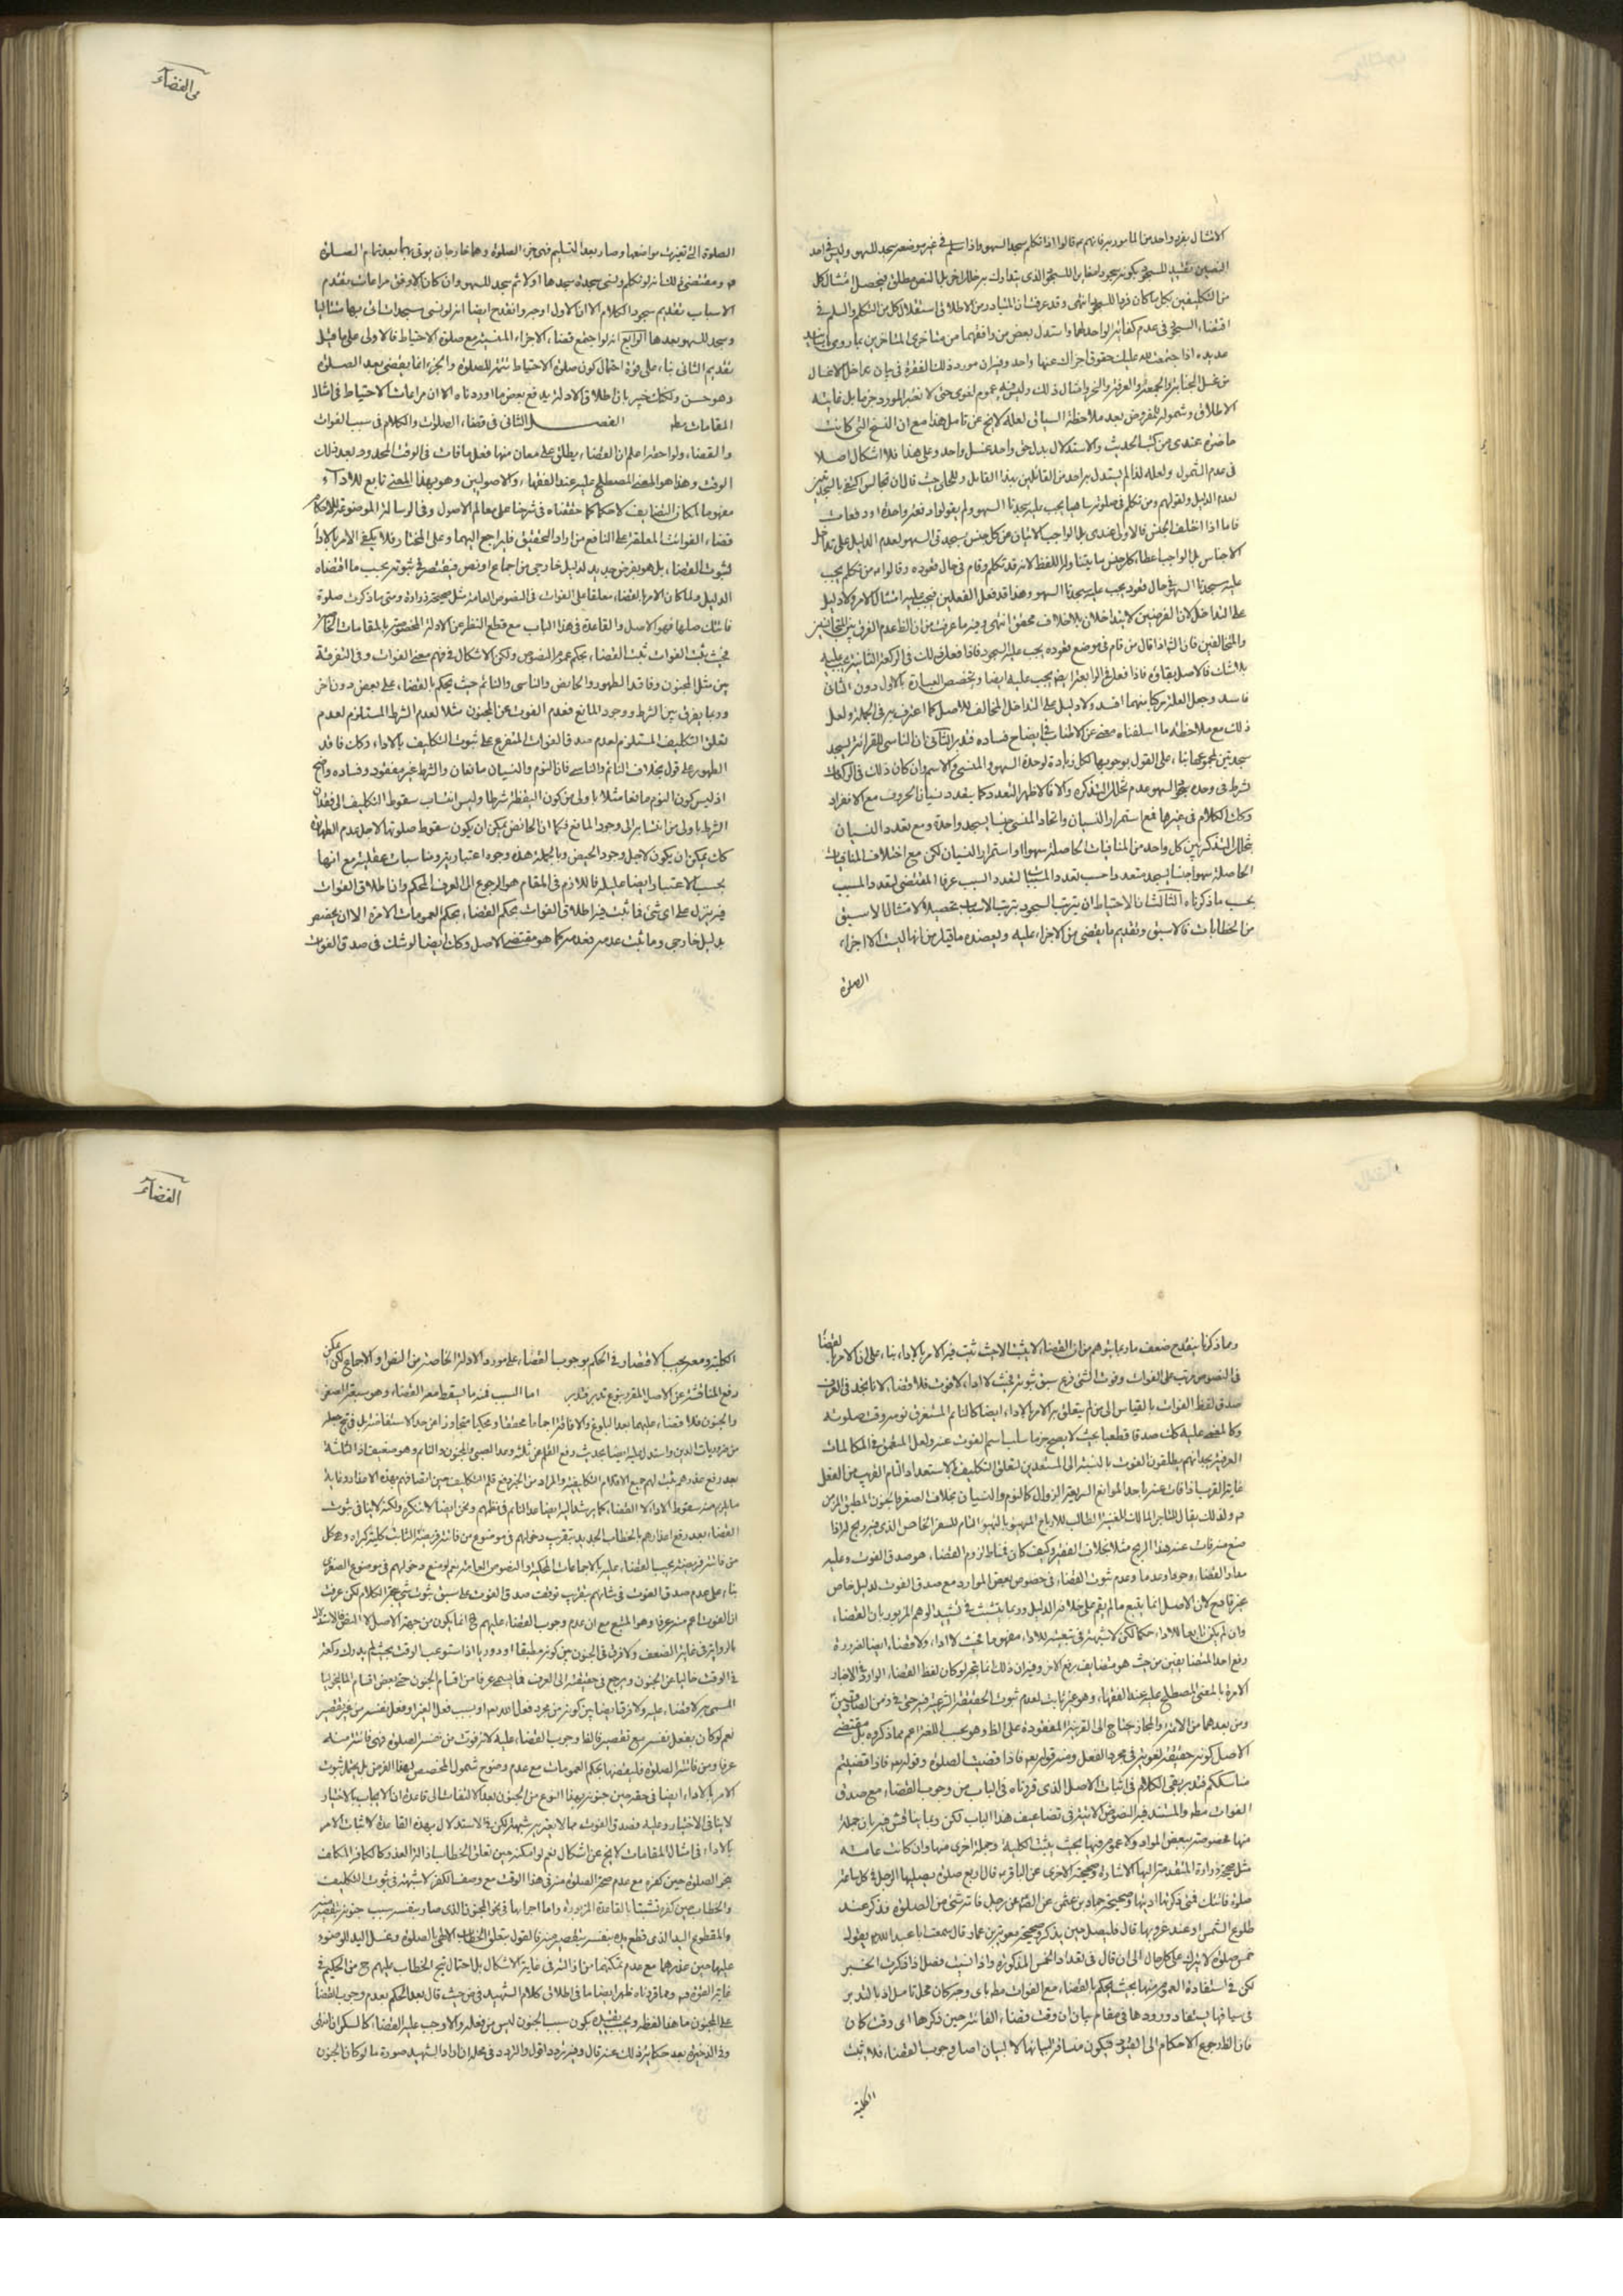 في القضآء
الامتثال بفرد واحد من المامور به فانهم قالوا اذا تكلم سجد للسهو واذا سلم في غير موضعه سجد للسهو وليس في احد
من التكليفين بكل ما كان فردا للسجود انتهى وقد عرفت ان المتبادر من الاطلاق استقلال كل من التكلم والسلم في
اقتضاء السجود في عدم كفاية الواحد لهما واستدل بعض من وافقهما من متاخري المتاخرين بما روي
اذا اجتمعت لله عليك حقوق اجزاك عنها واحد وفيه ان مورد ذلك الفقرة في بيان تداخل الاغسال
من غسل الجنابة والجمعة والعرفة والنحر وامثال ذلك وليس فيه عموم لغوي حتى لا تعتبر المورد جزما بل غايته
الاطلاق وشموله للمفروض بعد ملاحظة السياق لعله لا يخ عن تامل هذا مع ان النسخ التي كانت
حاضرة عندي من كتب الحديث والاستدلال بدل حق واحد غسل واحد وعلى هذا فلا اشكال اصلا
في عدم الشمول ولعله لذا لم يستدل به احد من القائلين بهذا القايل
لعدم الدليل ولقولهم ومن تكلم في صلوته ساهيا يجب عليه سجدتا السهو ولم يقولوا دفعة واحدة او دفعات
فاما اذا اختلف الجنس فالاولى عندي بل الواجب الاتيان عن كل جنس بسجدتي السهو لعدم الدليل على تداخل
الاجناس بل الواجب اعطاء كل جنس ما تناوله اللفظ لانه قد تكلم وقام في حال قعوده وقالوا من تكلم يجب
عليه سجدتا السهو حال قعود يجب عليه سجدتا السهو وهذا قد فعل الفعلين فيجب عليه امتثال الامر ولا دليل
على التداخل لان الفرضين لا يتداخلان بلا خلاف محقق انتهى وفيه ما عرفت من ان الظ عدم الفرق بين المتجانسين
والمتخالفين فان الشا اذا قال من قام في موضع قعوده يجب عليه السجود فاذا فعل ذلك في الركعة الثانية يجب عليه
بلا شك فالاصل بقاؤه فاذا فعل في الرابعة ايضا يجب عليه ايضا وتخصيص العبارة بالاول دون الثاني
فاسد وجعل العلة مركبا بينهما افسد ولا دليل على التداخل المخالف للاصل كما اعترف به في الجملة ولعل
ذلك مع ملاحظة ما اسلفناه مغن عن الاطناب في ايضاح فساده فتدبر الثاني ان الناسي للقرائة يسجد
سجدتين لمجموعها بناء على القول بوجوبها لكل زيادة لوحدة السهو والمنسي والاسم وان كان ذلك في الركعات
بشرط في وحدة السهو عدم تخلل التذكره والا فالاظهر التعدد كما يتعدد نسيان الحروف مع الانفراد
وكذا الكلام في غيرها فمع استمرار النسيان واتحاد المنسي جنسا يسجد واحدة ومع تعدد النسيان
بتخلل التذكر بين كل واحد من المنافيات الحاصلة سهوا او استمرار النسيان لكن مع اختلاف المنافيات
الحاصلة سهوا جنسا يسجد متعددا حسب تعدد المسببات لتعدد السبب عرفا المقتضي لتعدد المسبب
بحسب ما ذكرناه الثالث ان الاحتياط ان يترتب السجود بترتب الاسباب تحصيلا لامتثال الاسبق
من الخطابات فالاسبق وتقديم ما يقضى من الاجزاء عليه ويعضده ما قيل من انها ليست الا اجزاء
الصلوة
الصلوة التي تغيرت مواضعها وصار بعد التسليم فهي من الصلوة وهما خارجان يوتى بهما بعد تمام الصلوة
ومقتضى ذلك انه لو تكلم ونسي سجدة سجدها اولا ثم سجد للسهو وان كان الاوفق مراعات تقدم
الاسباب تقديم سجود الكلام الا ان الاول اوجه وانقدح ايضا انه لو نسي سجدات اتى بها متتاليا
وسجد للسهو بعدها الرابع انه لو اجتمع قضاء الاجزاء المنسية مع صلوة الاحتياط فالاولى على ما قيل
تقديم الثاني بناء على قوة احتمال كون صلوة الاحتياط تتمة للصلوة والجزء انما يقضى بعد الصلوة
وهو حسن ولكنك خبير بان اطلاق الادلة يدفع بعض ما اوردناه الا ان مراعات الاحتياط في امثال
المقامات مط الفصل الثاني في قضاء الصلوات والكلام في سبب الفوات
والقضاء ولواحقه اعلم ان القضاء يطلق على معان منها فعل ما فات في الوقت المحدود بعد ذلك
الوقت وهذا هو المعنى المصطلح عليه عند الفقهاء والاصوليين وهو بهذا المعنى تابع للادآء
مفهوما لمكان التضايف لا حكما كما حققناه في شرحنا على معالم الاصول وفي الرسالة الموضوعة للاحكام
قضاء الفوائت المعلقة على النافع من اراد التحقيق فليراجع اليهما وعلى المختار فلا يكفي الامر بالاداء
لثبوت القضاء بل هو بفرض جديد لدليل خارجي من اجماع او نص فيقتصر في ثبوته بحسب ما اقتضاه
الدليل ولما كان الامر بالقضاء معلقا على الفوات في النصوص العامة مثل صحيحة زرارة ومتى ما ذكرت صلوة
فاتتك صليتها فهو الاصل والقاعدة في هذا الباب مع قطع النظر عن الادلة المختصة بالمقامات الخاصة
فحيث ثبت الفوات ثبت القضاء بحكم عموم النصوص ولكن الاشكال في فهم معنى الفوات وفي التفرقة
بين مثل المجنون وفاقد الطهور والحايض والناسي والنائم حيث يحكم بالقضاء على بعض دون اخر
وربما يفرق بين الشرط ووجود المانع فعدم الفوت عن المجنون مثلا لعدم الشرط المستلزم لعدم
تعلق التكليف المستلزم لعدم صدق الفوات المتفرع على ثبوت التكليف بالاداء وكك فاقد
الطهور على قول بخلاف النائم والناسي فان النوم والنسيان مانعان والشرط غير مفقود وفساده واضح
اذ ليس كون النوم مانعا مثلا باولى من كون اليقظة شرطا وليس انتساب سقوط التكليف الى فقدان
الشرط باولى من انتسابه الى وجود المانع فكما ان الحائض يمكن ان يكون سقوط صلوتها لاجل عدم الطهارة
كك يمكن ان يكون لاجل وجود الحيض وبالجملة هذه وجوه اعتبارية ومناسبات عقلية مع انها
بحسب الاعتبار ايضا عليلة فاللازم في المقام هو الرجوع الى العرف المحكم وان اطلاق الفوات
فيه ينزل على اي شيء فما ثبت فيه اطلاق الفوات يحكم القضاء بحكم العمومات الامرة الا ان يخصص
بدليل خارجي وما ثبت عدمه فعدمه كما هو مقتضى الاصل وكك ايضا لو شك في صدق الفوت
القضآء
ومما ذكرنا ينقدح ضعف ما ربما يتوهم من ان القضاء لا يثبت الا حيث ثبت فيه الامر بالاداء بناء على ان الامر بالقضاء
في النصوص مرتب على الفوات وفوت الشئ فرع سبق ثبوته فحيث لا اداء لا فوت فلا قضاء لانا نجد في العرف
صدق لفظ الفوات بالقياس الى من لم يتعلق به الامر بالاداء ايضا كالنائم المستغرق نومه وقت صلوته
وكالمغمى عليه كك صدقا قطعيا بحيث لا يصح جزما سلب اسم الفوت عنه ولعل المتعمق في المكالمات
العرفية يجد انهم يطلقون الفوت بالنسبة الى المستعدين لتعلق التكليف بالاستعداد التام القريب من الفعل
غاية القرب اذا فات عنه باحد الموانع السريعة الزوال كالنوم والنسيان بخلاف الصغر والجنون المطبق المزمن
ولذلك يقال للتاجر المالك للقنية الطالب للارباح المتهيئ بالتهيؤ التام للسفر الخاص الذي فيه ربح لو اذا
منع منه فات عنه هذا الربح مثلا بخلاف الفقير وكيف كان فمناط لزوم القضاء هو صدق الفوت وعليه
مدار القضاء وجودا وعدما وعدم ثبوت القضاء في خصوص بعض الموارد مع صدق الفوت لدليل خاص
غير قادح لان الاصل انما يتبع ما لم يقم على خلافه الدليل وربما يتشبث في تشييد الوهم المزبور بان القضاء
وان لم يكن تابعا للاداء حكما لكن لا شبهة في تبعيته للاداء مفهوما فحيث لا اداء ولا قضاء ايضا لضرورة
رفع احد المتضايفين من حيث هو متضايف برفع الاخر وفيه ان ذلك انما يتجه لو كان لفظ القضاء الوارد في الاخبار
الامرة بالمعنى المصطلح عليه عند الفقهاء وهو غير ثابت لعدم ثبوت الحقيقة الشرعية فيه حتى في زمن الصادقين
ومن بعدهما من الائمة والمجاز يحتاج الى القرينة المفقودة على الظ وهو بحسب اللغة اعم مما ذكروه بل مقتضى
الاصل كونه حقيقة لغوية في مجرد الفعل ومنه قوله تع فاذا قضيت الصلوة وقوله تع فاذا قضيتم
مناسككم فتدبر بقي الكلام في اثبات الاصل الذي قررناه في الباب من وجوب القضاء مع صدق
الفوات مط والمستند فيه النصوص الاتية في تضاعيف هذا الباب لكن ربما يناقش فيه بان جملة
منها مخصوصة ببعض المواد ولا عموم فيها بحيث يثبت الكلية وجملة اخرى منها وان كانت عامة
مثل صحيحة زرارة المتقدمة اليها الاشارة وصحيحته الاخرى عن الباقر قال اربع صلوة يصليها الرجل في كل ساعة
صلوة فاتتك فمتى ذكرتها اديتها وصحيحة حماد بن عثمن عن الصم عن رجل فاته شئ من الصلوة فذكر عند
طلوع الشمس او عند غروبها قال فليصل حين يذكر وصحيحة معوية بن عمار قال سمعت ابا عبد الله يقول
خمس صلوة لا تترك على كل حال الى ان قال في تعداد الخمس المذكورة واذا نسيت فصل اذا ذكرت الخبر
لكن في استفادة العموم منها بحيث يحكم بالقضاء مع الفوات مط باي وجه كان محل تامل اذ بالتدبر
في سياقها يستفاد ورودها في مقام بيان ان وقت قضاء الفائتة حين ذكرها اي وقت كان
فان الظ رجوع الاحكام الى القيود فيكون مساقه لبيانها لا لبيان اصل وجوب القضاء فلا يثبت
الكلية
الكلية ومعه يجب الاقتصار في الحكم بوجوب القضاء على مورد الادلة الخاصة من النص او الاجماع لكن يمكن
دفع المناقشة عن الاصل المقرر بنوع تدبر فتدبر اما السبب فمنه ما يسقط معه القضاء وهو سبعة الصغر
والجنون فلا قضاء عليهما بعد البلوغ والافاقة اجماعا محققا ومحكيا متجاوزا عن حد الاستفاضة بل في نهج جعله
من ضروريات الدين واستدل عليه ايضا بحديث رفع القلم عن ثلثة وعد الصبي والمجنون والنائم وهو ضعيف اذ الثلثة
بعد رفع عذرهم يثبت لهم جميع الاقلام التكليفية والمراد من الخبر رفع قلم التكليف حين اتصافهم بهذه الاعذار وغاية
ما يلزم منه سقوط الاداء لا القضاء كما يرشد اليه ايضا عد النائم في نظمهم ونحن ايضا لا ننكره ولكنه لا ينافي ثبوت
القضاء بعد رفع اعذارهم بالخطاب الجديد بتقريب دخولهم في موضوع من فاتته فريضة الثابت كلية كبراه وهي كل
من فاتته فريضة يجب القضاء عليه بالاجماعات المحكية والنصوص العامة نعم لو منع دخولهم في موضوع الصغرى
بناء على عدم صدق الفوت في شانهم بتقريب توقف صدق الفوت على سبق ثبوت شئ تم الكلام لكن عرفت
ان الفوت اعم منه عرفا وهو المتبع مع ان عدم وجوب القضاء عليهم ح انما يكون من جهة الاصل لا النص فالاستدلال
بالرواية في غاية الضعف ولا فرق في الجنون بين كونه مطبقا او دوريا اذا استوعب الوقت بحيث لم يدرك ركعة
في الوقت خاليا عن الجنون ويرجع في حقيقته الى العرف فما يسمى عرفا من اقسام الجنون حتى بعض اقسام الماليخوليا
المسمى به لا قضاء عليه ولا فرق ايضا بين كونه من مجرد فعل الله تعم او بسبب فعل الغير او فعل نفسه من غير تقصير
نعم لو كان بفعل نفسه مع تقصيره فالظ وجوب القضاء عليه لانه فوت من نفسه الصلوة فهي فائتة منه
عرفا ومن فاتته الصلوة فليقضها بحكم العمومات مع عدم وضوح شمول المخصص لهذا الفرض بل يحتمل ثبوت
الامر بالاداء ايضا في حقه حين جنونه بهذا النوع من الجنون بعد الالتفات الى قاعدة ان الايجاب بالاختيار
لا ينافي الاختيار وعليه فصدق الفوت مما لا يعتريه شبهة لكن في الاستدلال بهذه القاعدة لاثبات الامر
بالاداء في امثال المقامات لا يخ عن اشكال نعم لو امكنه حين تعلق الخطاب ازالة العذر كالكافر المكلف
بنحو الصلوة حين كفره مع عدم صحة الصلوة منه في هذا الوقت مع وصف الكفر لا شبهة في ثبوت التكليف
والخطاب حين كفره تشبثا بالقاعدة المزبورة واما اجراءها في نحو المجنون الذي صار بنفسه سبب جنونه بتقصيره
والمقطوع اليد الذي قطع يده بنفسه بتقصير منه فالقول بتعلق الخطاب الالهي بالصلوة وغسل اليد للوضوء
عليها حين عذرهما مع عدم تمكنهما من ازالته في غاية الاشكال بل احتمال قبح الخطاب عليهم ح من الحكيم في
غاية القوة ومما قررناه ظهر ايضا ما في اطلاق كلام الشهيد في ض حيث قال بعد الحكم بعدم وجوب القضاء
على المجنون ما هذا لفظه ويجب تقييده بكون سبب الجنون ليس من فعله والا وجب عليه القضاء كالسكران انتهى
وفي الذخيرة بعد حكاية ذلك عنه قال وفيه تردد اقول والتردد في محله ان اراد الشهيد صورة ما لو كان الجنون